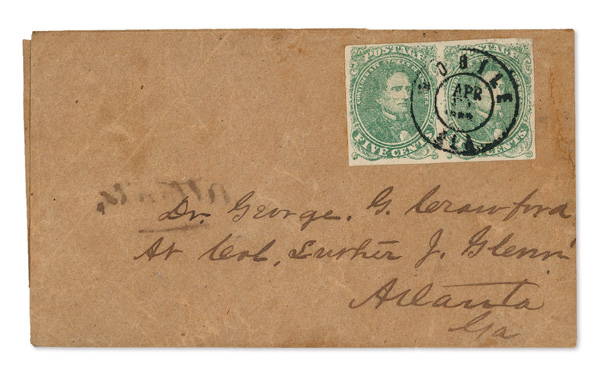 POSTAGE POSTAGE
FIVE CENTS CENTS
MOBILE
APR
ALA
Dr. George. G. Crawford,
At Col, Luther J. Glenn
Atlanta
Ga